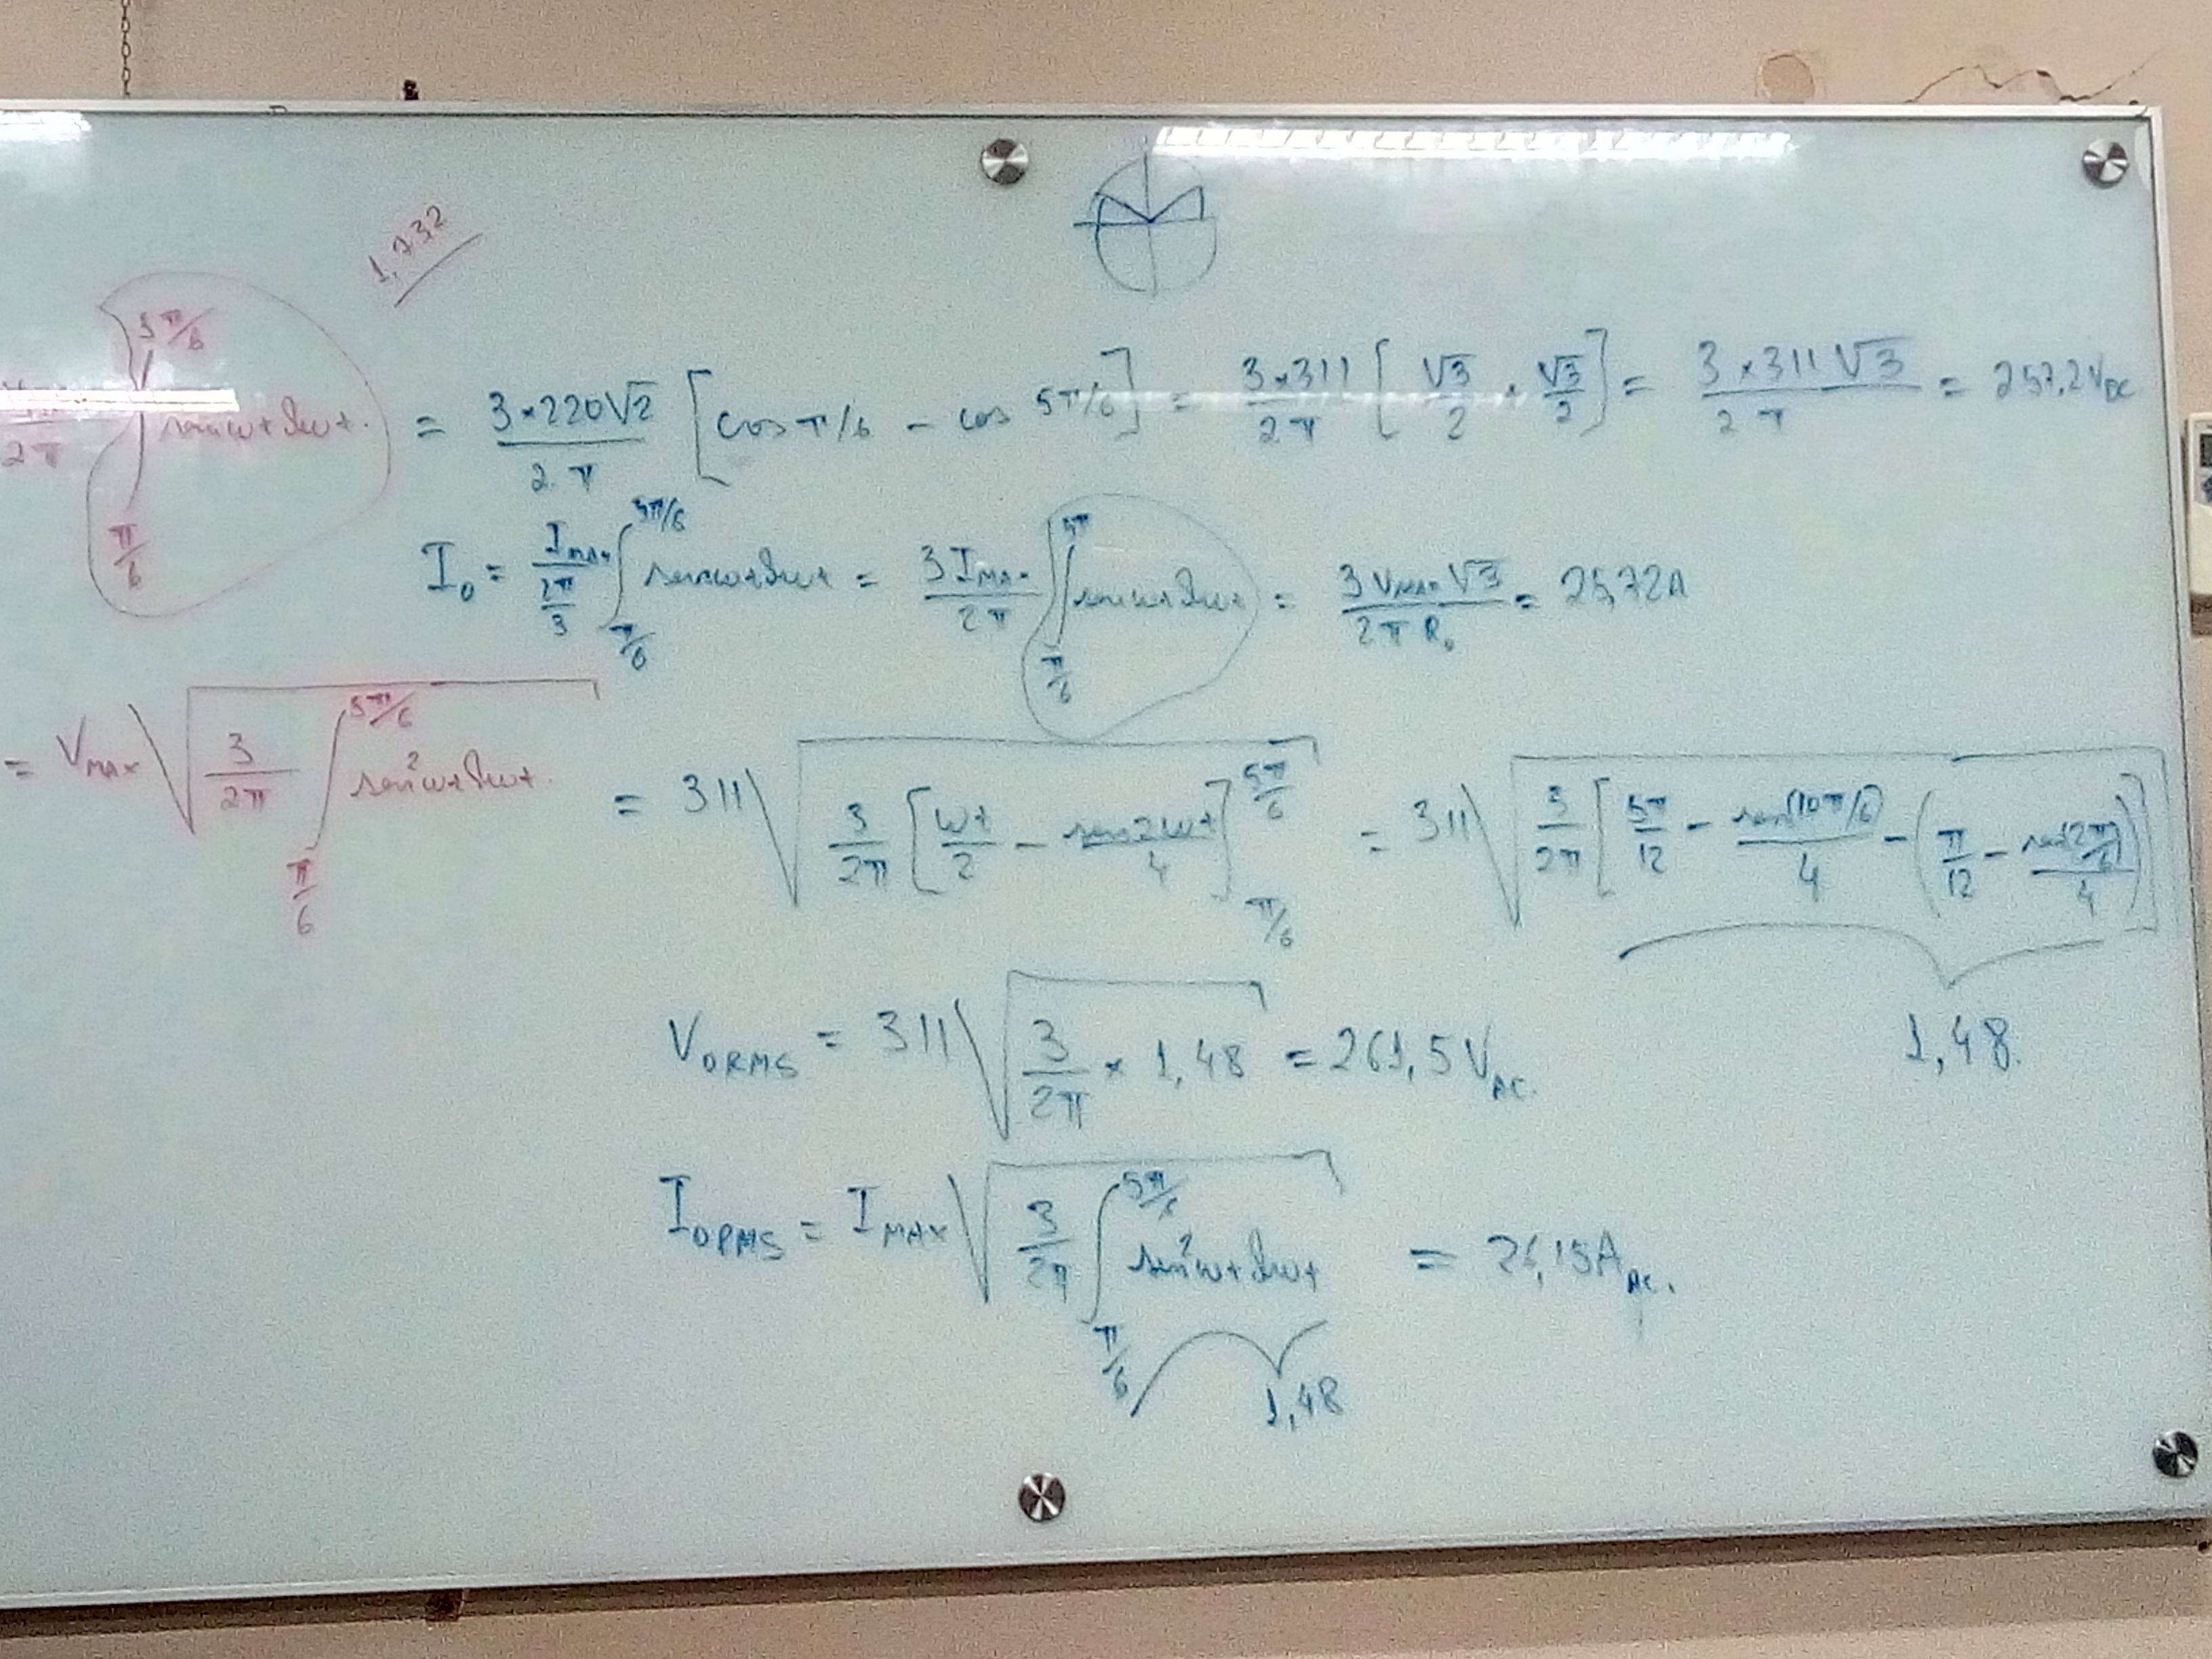 1,732
2π ∫ π/6 5π/6 senwt dwt. = 3×220√2 / 2π [cos π/6 - cos 5π/6] = 3×311 / 2π [√3/2 + √3/2] = 3×311√3 / 2π = 257,2 VDC
I0 = IMAX / 2π/3 ∫ π/6 5π/6 senwt dwt = 3 IMAX / 2π ∫ π/6 5π senwt dwt = 3 VMAX √3 / 2π R0 = 25,72A
= VMAX √ 3/2π ∫ π/6 5π/6 sen² wt dwt. = 311 √ 3/2π [wt/2 - sen2wt/4] 5π/6 π/6 = 311 √ 3/2π [5π/12 - sen(10π/6)/4 - (π/12 - sen(2π/6)/4)]
1,48.
VORMS = 311 √ 3/2π × 1,48 = 261,5 VAC.
IORMS = IMAX √ 3/2π ∫ π/6 5π/6 sen² wt dwt = 26,15A AC.
1,48